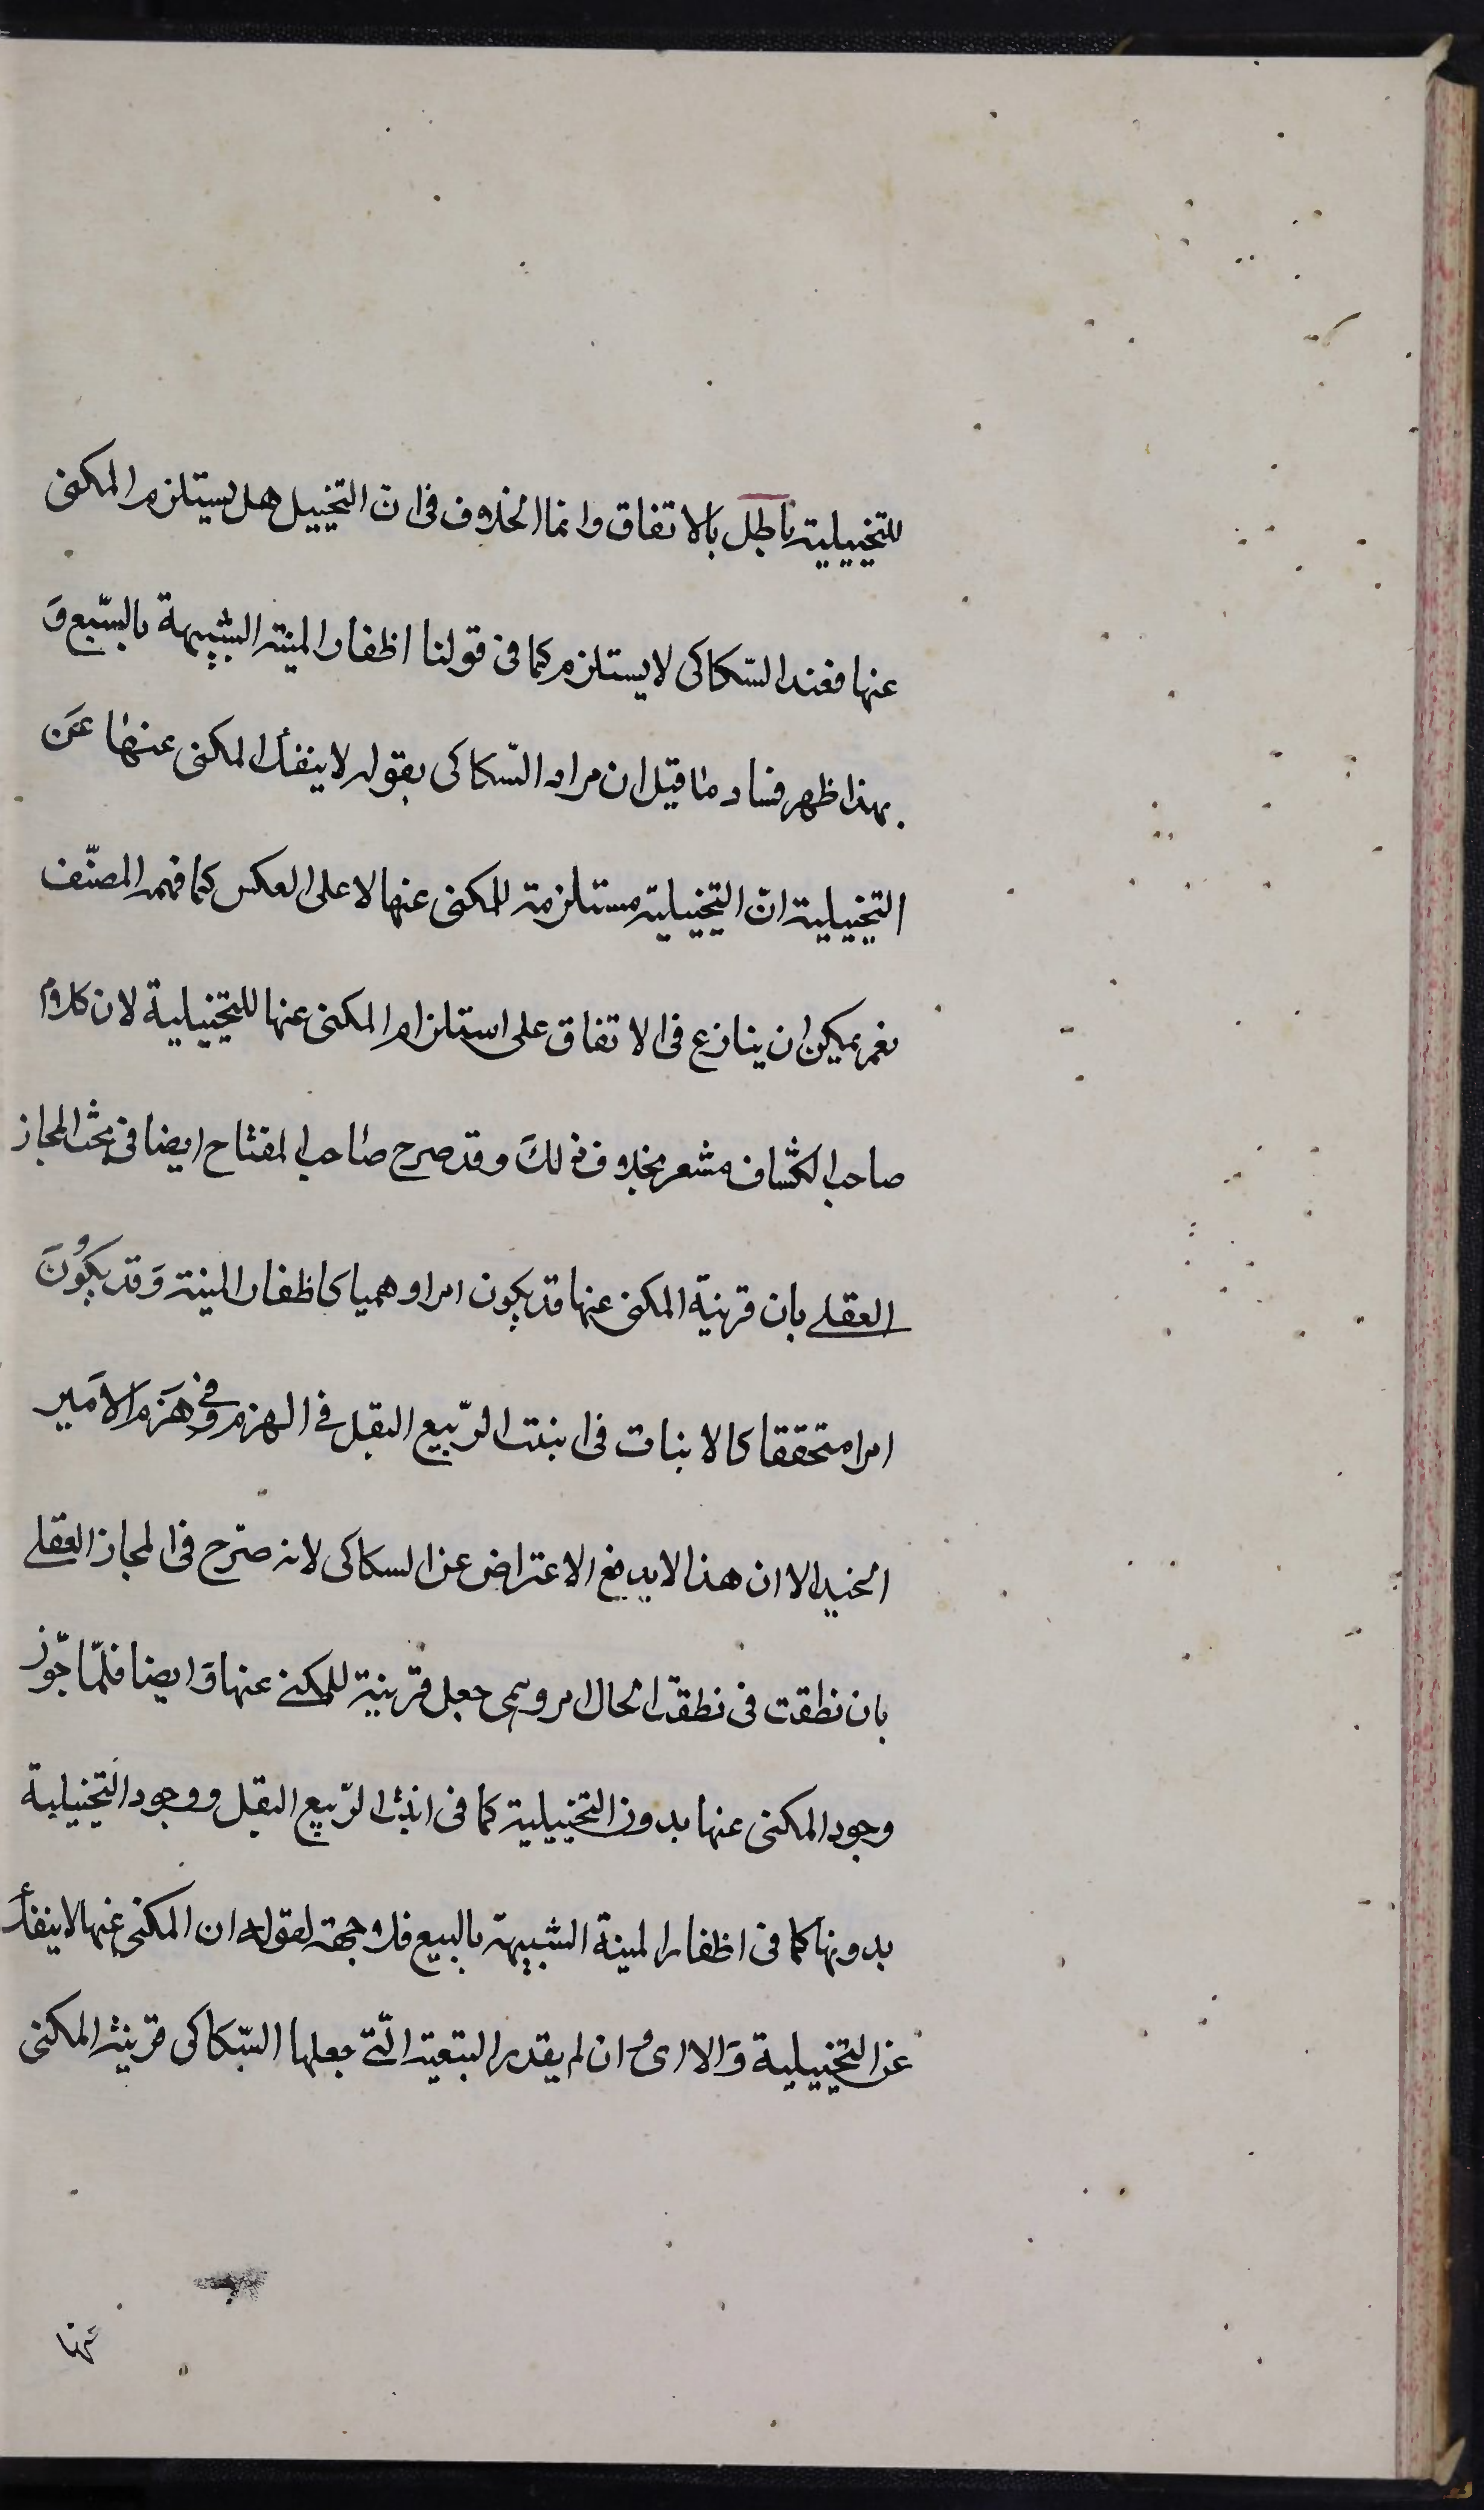 للتخييلية باطل بالاتفاق وانما الخلاف فى ان التخييل هل يستلزم المكنى
عنها فعند السّكاكى لا يستلزم كما فى قولنا اظفار المنية الشبيهة بالسّبع وَ
بهذا ظهر فساد ما قيل ان مراد السّكاكى بقوله لا ينفك المكنى عنها عَن
التخييلية انّ التخييلية مستلزمة للمكنى عنها لا على العكس كما فهمه المصنّف
نعم يمكن ان ينازع فى الاتفاق على استلزام المكنى عنها للتخييلية لان كلام
صاحب الكشاف مشعر بخلاف ذلكَ وقد صرح صاحب المفتاح ايضا فى بحث المجاز
العقلے بان قرينة المكنى عنها قد يكون امرا وهميا كاظفار المنية وَقد يكُونَ
امرا متحققا كالانبات فى انبت الرّبيع البقل فے الهزم وفى هَزمَ الامَير
الجند الا ان هذا لا يدفع الاعتراض عن السكاكى لانه صرّح فى المجاز العقلے
بان نطقت فى نطقت الحال امر وهمى جعل قرينة للمكنے عنها وَايضا فلمّا جّوز
وجود المكنى عنها بدون التخييلية كما فى انبت الرّبيع البقل ووجود التخييلية
بدونها كما فى اظفار المنية الشبيهة بالسبع فلا جهة لقوله ان المكنى عنها لا ينفك
عن التخييلية وَالا اى وان لم يقدر التبعية الّتے جعلها السّكاكى قرينة المكنى
عنها